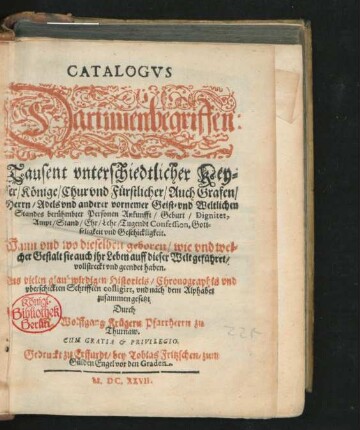 CATALOGVS
Darinnen begriffen:
Tausent vnterschiedtlicher Key-
ser/Könige/Chur vnd Fürstlicher/Auch Grafen/
Herrn/Adels vnd anderer vornemer Geist-vnd Weltlichen
Standes berühmbter Personen Ankunfft/Geburt/Digniter,
Ampt/Stand/Ehr/Lehr/Tugendt Confession, Gott-
seligkeit vnd Geschickligkeit.
Wann vnd wo dieselben geboren/wie vnd wel-
cher Gestalt sie auch ihr Leben auff dieser Welt geführet/
vollstreckt vnd geendet haben.
Aus vielen glaubwirdigen Historicis/Chronographis vnd
vberschickten Schrifften colligirt, vnd nach dem Alphabet
zusammen gesetzt,
Durch
Wolffgang Krügern Pfarrherrn zu
Thurnaw.
CUM GRATIA & PRIVILEGIO.
Gedruckt zu Erffurdt/bey Tobias Fritzschen/zum
Gülden Engel vor den Graden.
M. DC. XXVII.
Königl.
Bibliothek
Berlin